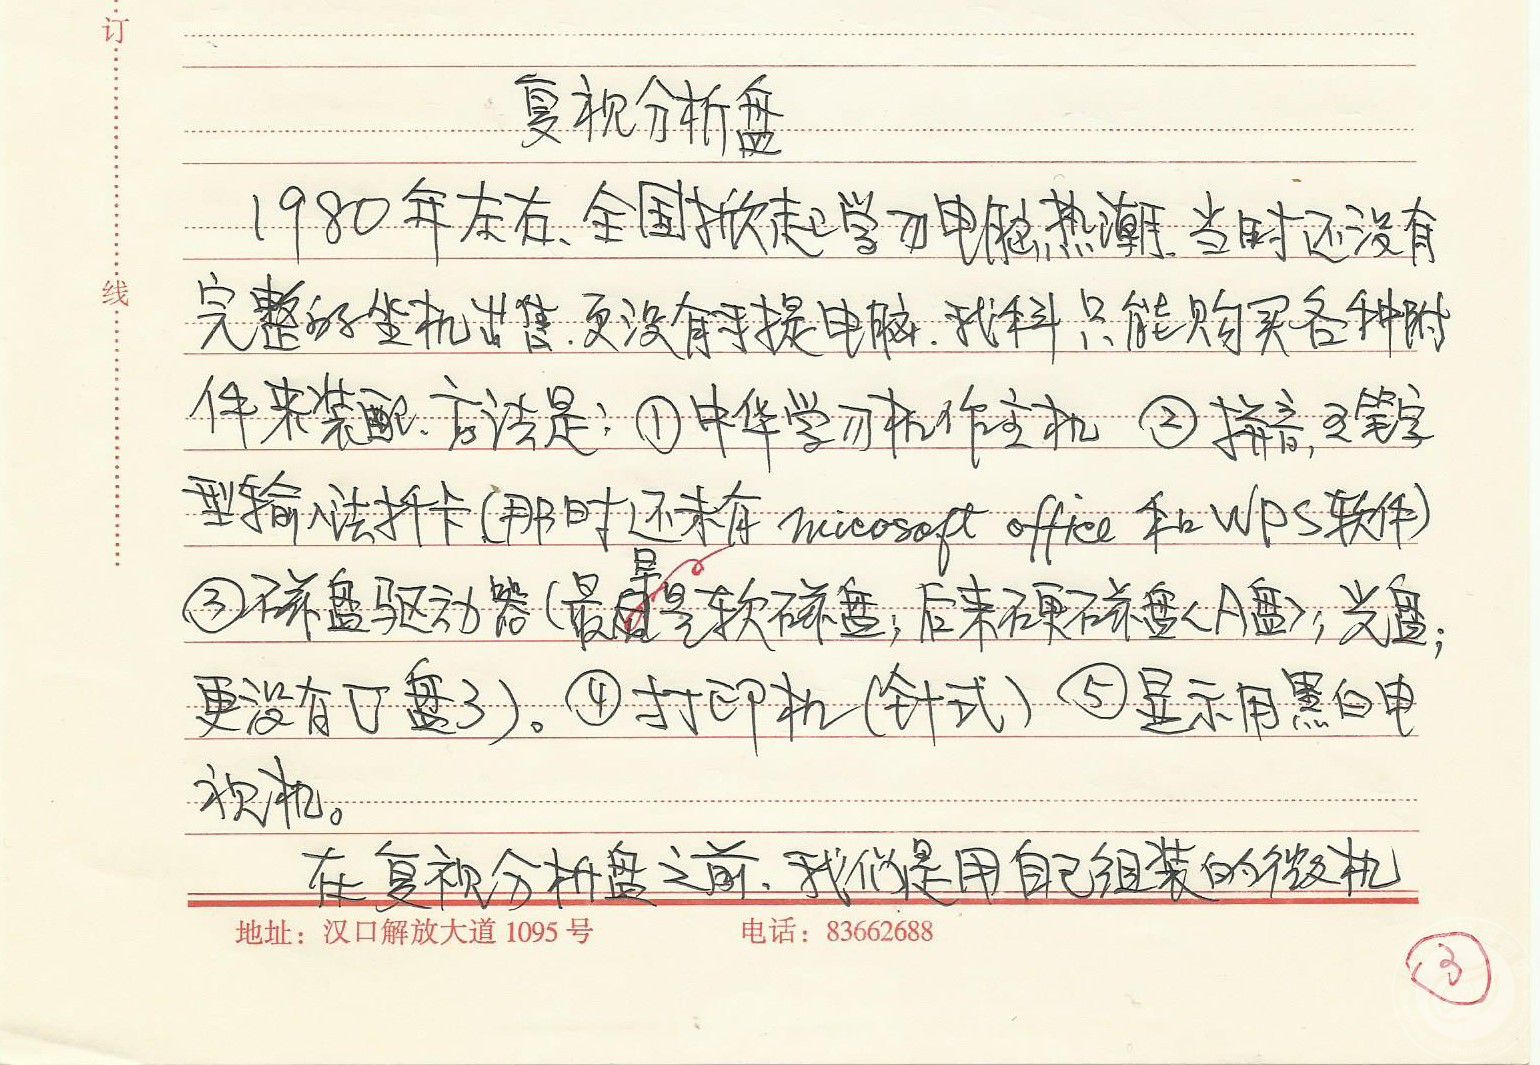 订
线
复视分析盘
1980年左右、全国掀起学习电脑热潮.当时还没有
完整的坐机出售.更没有手提电脑.我科只能购买各种附
件来装配.方法是:①中华学习机作主机 ②拼音,五笔字
型输入法扦卡(那时还未有micosoft office和WPS软件)
③磁盘驱动器(最早是软磁盘;后来硬磁盘<A盘>;光盘;
更没有U盘了)。④打印机(针式) ⑤显示用黑白电
视机。
在复视分析盘之前、我们是用自己组装的微机
地址:汉口解放大道1095号 电话:83662688
③